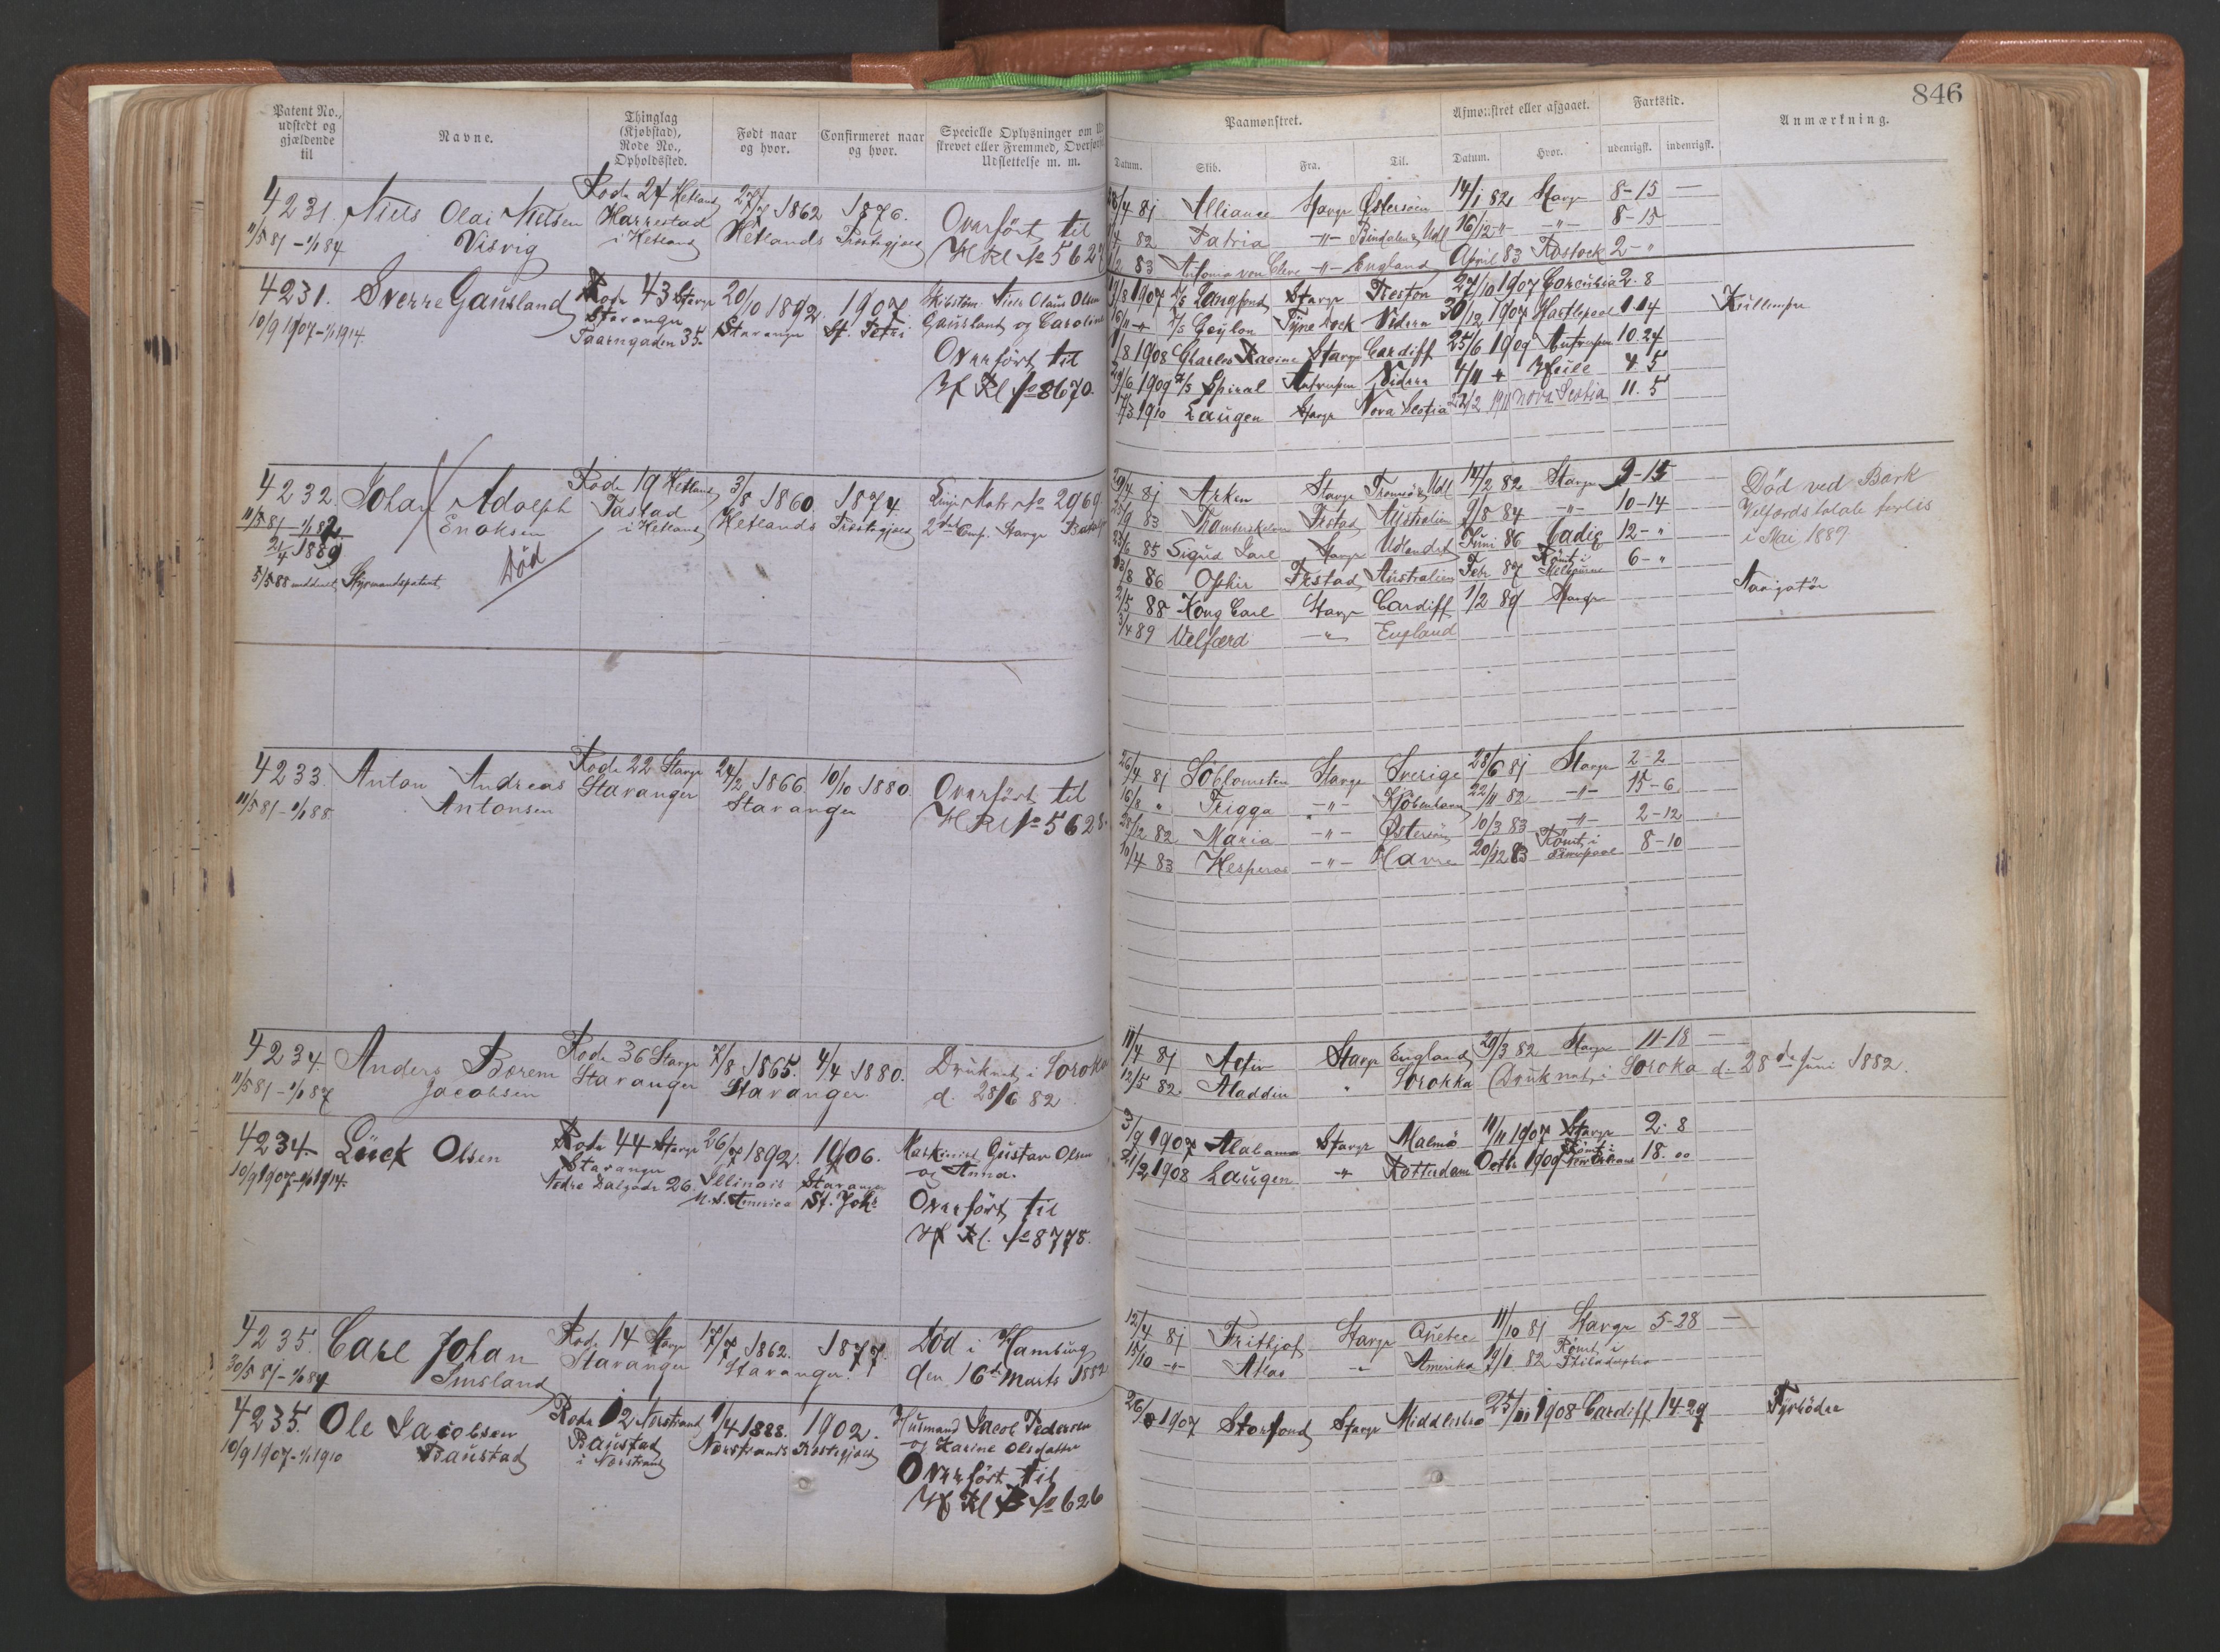 846
Patent No., udstedt og gjældende til
Navne.
Thinglag (Kjøbstad), Rode No., Opholdssted.
Født naar og hvor.
Confirmeret naar og hvor.
Specielle Oplysninger om
strevet eller Fremmed, Overført
Udslettelse m. m.
Paamønstret.
Afmønstret eller afgaaet.
Fartstid.
Anmærkning.
Datum. Skib. Fra. Til. Datum. Hvor. udenrigsk. indenrigsk.
4231. Niels Olai Nielsen
Visvig
11/5 81 - 1/1 84
Rode 27 Hetland
Harrestad
i Hetland
1862
Hetlands Præstegjeld
1876.
Overført til
H Rl No 5627
4 81 Alliance Stavgr Østersøen 14/1 82 Stavgr 8-15 —
82 Patria -"- Bindalen & Udl 16/12 " -"- 8-15
83 Antonia von Cleve -"- England April 83 Rostock 2-"
4231. Sverre Gausland
10/9 1907 - 1/1 1914.
Rode 43 Stavgr
Stavanger
Taarngaden 35.
20/10 1892.
Stavanger
1907
St. Petri
Skibstm. Niels Olaus Olsen
Gausland og Caroline
Overført til
H Rl No 8670.
8 1907 D/S Langfond Stavgr Preston 27/10 1907 Corcubia 2.8
Tyne Dock Videre 30/12 1907 Hartlepool 1.14
Kullemper
8 1908 Charles Racine Stavgr Cardiff 25/6 1909 Antwerpen 10.24
6 1909 D/S Spiral Antwerpen Videre 4/11 Weile 4.5
1910 Laugen Stavgr Nova Scotia 22/2 1911 Nova Scotia 11.5
4232. Johan Adolph
Enoksen
11/5 81 - 1/1 82
1889
5/5 88 meddelt Styrmandspatent
Død
Rode 19 Hetland
Tastad
i Hetland
3/8 1860.
Hetlands Præstegjeld
1874.
Linj Matr No 2969
2den Comp. Stavgr Batalj
4 81 Arken Stavgr Tromsø & Udl 14/2 82 Stavgr 9-15
9 83 Frstad Australien 9/8 84 -"- 10-14
6 85 Sigurd Jarl Stavgr Udlandet Juni 86 Cadiz 12-"
8 86 Oskir Frstad Australien Febr. 87 Rømt i Melbourne 6-"
2/5 88 Kong Carl Stavgr Cardiff 1/2 89 Stavgr
3/4 89 Velfærd -"- England
Død ved Bark
Velfærds totale forlis
i Mai 1889
Navigatør
4233. Anton Andreas
Antonsen
11/5 81 - 1/1 88
Rode 22 Stavgr
Stavanger
24/2 1866.
Stavanger
10/10 1880.
Overført til
H Rl No 5628.
26/4 81 Søblomsten Stavgr Sverige 28/6 81 Stavgr 2-2
16/8 " Frigga -"- Kjøbenhavn 22/11 82 -"- 15-6
28/12 82 Maria -"- Østersøen 10/3 83 -"- 2-12
10/4 83 Hesperos -"- Havre 20/12 83 Rømt i Liverpool 8-10
4234. Anders Børem
Jacobsen
11/5 81 - 1/1 87
Rode 36 Stavgr
Stavanger
7/8 1865.
Stavanger.
4/4 1880.
Druknet i Soroka
d. 28/6 82
11/4 81 Activ Stavgr England 29/3 82 Stavgr 11-18 —
12/5 82. Aladdin " Sorokka Druknet i Soroka d. 28de Juni 1882.
4234. Lück Olsen
10/9 1907 - 1/1 1914.
Rode 44 Stavgr
Stavanger
Nedre Dalgade 26.
26/7 1892.
Illinois
N. S. Amerika
1906.
Stavanger
St. Joh.
Maskinist Gustav Olsen
og Anna.
Overført til
H Rl. No 8778.
3/9 1907 Alabama Stavgr Malmö 11/11 1907 Stavgr 2.8
21/2 1908 Laugen " Rotterdam Octbr 1909 Rømt i New Orleans 18.00
4235. Carl Johan
Smsland
30/5 81 - 1/1 84
Rode 14 Stavgr
Stavanger
17/7 1862.
Stavanger.
1877.
Død i Hamburg
den 16de Marts 1882
12/4 81 Fritjof Stavgr Quebec 11/10 81 Stavgr 5-28 —
15/10 -"- Atlas " Amerika 19/1 82 Rømt i Philadelphia
4235. Ole Jacobsen
Baustad
10/9 1907 - 1/1 1910
Rode 12 Nerstrand
Baustad
i Nerstrand
1/4 1888.
Nerstrands Præstegjeld
1902.
Husmand Jacob Pedersen
og Karine Olsdatter
Overført til
H Rl No 626
26/8 1907 Storfond Stavgr Middlesbro 25/11 1908 Cardiff 14-29
Fyrbøder